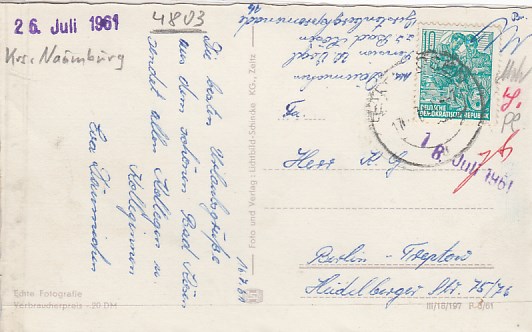 26. Juli 1961
4803
Krs. Naumburg
Die besten Urlaubsgrüße
aus dem schönen Bad Kösen
sendet allen Kollegen u.
Kolleginnen
Eva
16.7.61
Echte Fotografie
Verbraucherpreis - 20 DM
Foto und Verlag: Lichtbild-Schincke KG., Zeitz
Bad Kösen
10
DEUTSCHE
DEMOKRATISCHE REPUBLIK
18. Juli 1961
Fa.
Herr K G
Berlin - Treptow
Heidelberger Str. 75/76
III/18/197 P-5/61